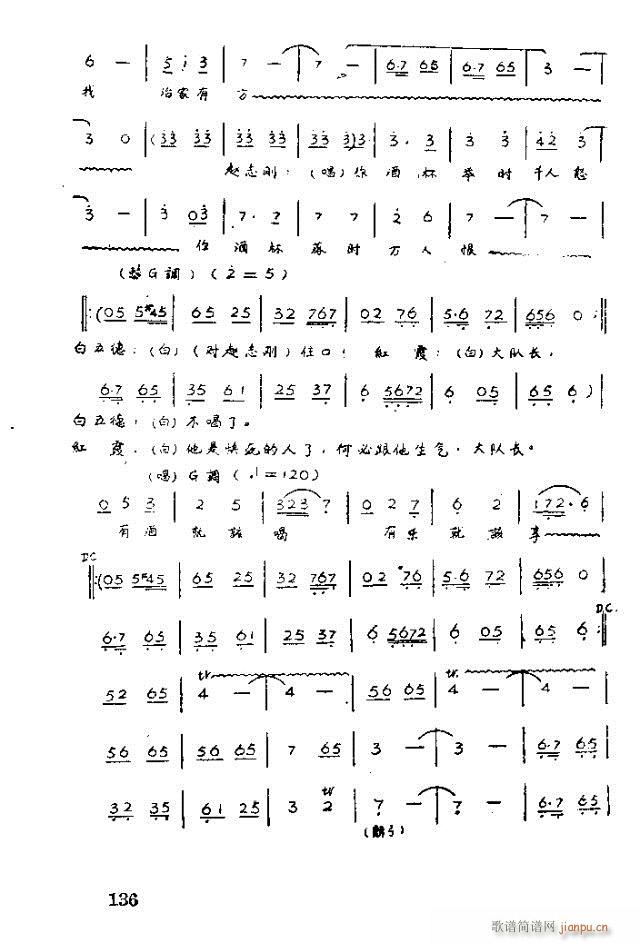 6 — | 5 i 3 | 7 — | 7 — | 6·7 65 | 6·7 65 | 3 — |
我 治家有方
3 0 | (33 33 | 33 33 | 33 3) 3· | 3· 3 | 3 3 | 42 3 |
赵志刚：(唱)你酒杯举时千人怒
3 — | 3 03 | 7· 7 | 7 7 | 2 6 | 7 — | 7 — |
你酒杯落时万人恨
(G调)(2=5)
‖:(05 5#45 | 65 25 | 32 767 | 02 76 | 5·6 72 | 656 0 :‖
白五德：(白)(对赵志刚)住口！ 紅 霞：(白)大队长，
6·7 65 | 35 61 | 25 37 | 6 5672 | 6 05 | 65 6 )
白五德：(白)不喝了。
紅 霞：(白)他是快死的人了，何必跟他生气·大队长。
(唱)G調(♩=120)
0 5 3 | 2 5 | 323 7 | 0 2 7 | 6 2 | 172·6
有酒就該喝 有乐就該享
D.C.
‖:(05 5#45 | 65 25 | 32 767 | 02 76 | 5·6 72 | 656 0 |
D.C.
6·7 65 | 35 61 | 25 37 | 6 5672 | 6 05 | 65 6 :‖
52 65 | tr 4 — | 4 — | 56 65 | tr 4 — | 4 — |
56 65 | 56 65 | 7 65 | 3 — | 3 — | 6·7 65 |
32 35 | 61 25 | 3 tr 2 | 7 — | 7 — | 6·7 65 |
136
歌谱简谱网
jianpu.cn